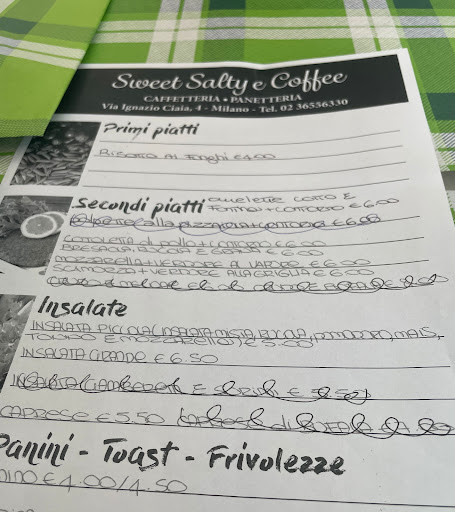 Sweet Salty e Coffee
CAFFETTERIA • PANETTERIA
Via Ignazio Ciaia, 4 - Milano - Tel. 02 36556330
Primi piatti
RISOTTO AI FUNGHI €4.00
Secondi piatti OMELETTE COTTO E
FORMAG + CONTORNO €6.00
alla PIZZAIOLA + CONTORNO €6.00
COTOLETTA di pollo + CONTORNO €6.00
BRESAOLA, RUCOLA E GRANA €6.00
MOZZARELLA + VERDURE AL VAPORE €6.00
SCAMORZA + VERDURE ALLA GRIGLIA €6.00
Insalate
INSALATA PICCOLA (INSALATA MISTA, RUCOLA, POMODORO, MAIS,
TONNO E MOZZARELLA) €5.00
INSALATA GRANDE €6.50
INSALATA GAMBERETTI E
CAPRESE €5.50 CAPRESE di BUFALA
Panini - Toast - Frivolezze
€4.00/4.50